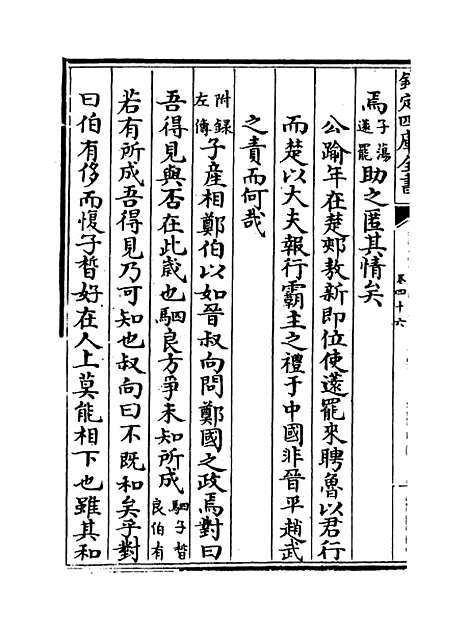 欽定四庫全書
卷四十六
焉子蕩薳罷助之匿其情矣
公踰年在楚郟敖新即位使薳罷來聘魯以君行
而楚以大夫報行霸主之禮于中國非晉平趙武
之責而何哉
附録左傳子產相鄭伯以如晉叔向問鄭國之政焉對曰
吾得見與否在此歲也駟良方爭未知所成駟子晳良伯有
若有所成吾得見乃可知也叔向曰不既和矣乎對
曰伯有侈而愎子晳好在人上莫能相下也雖其和